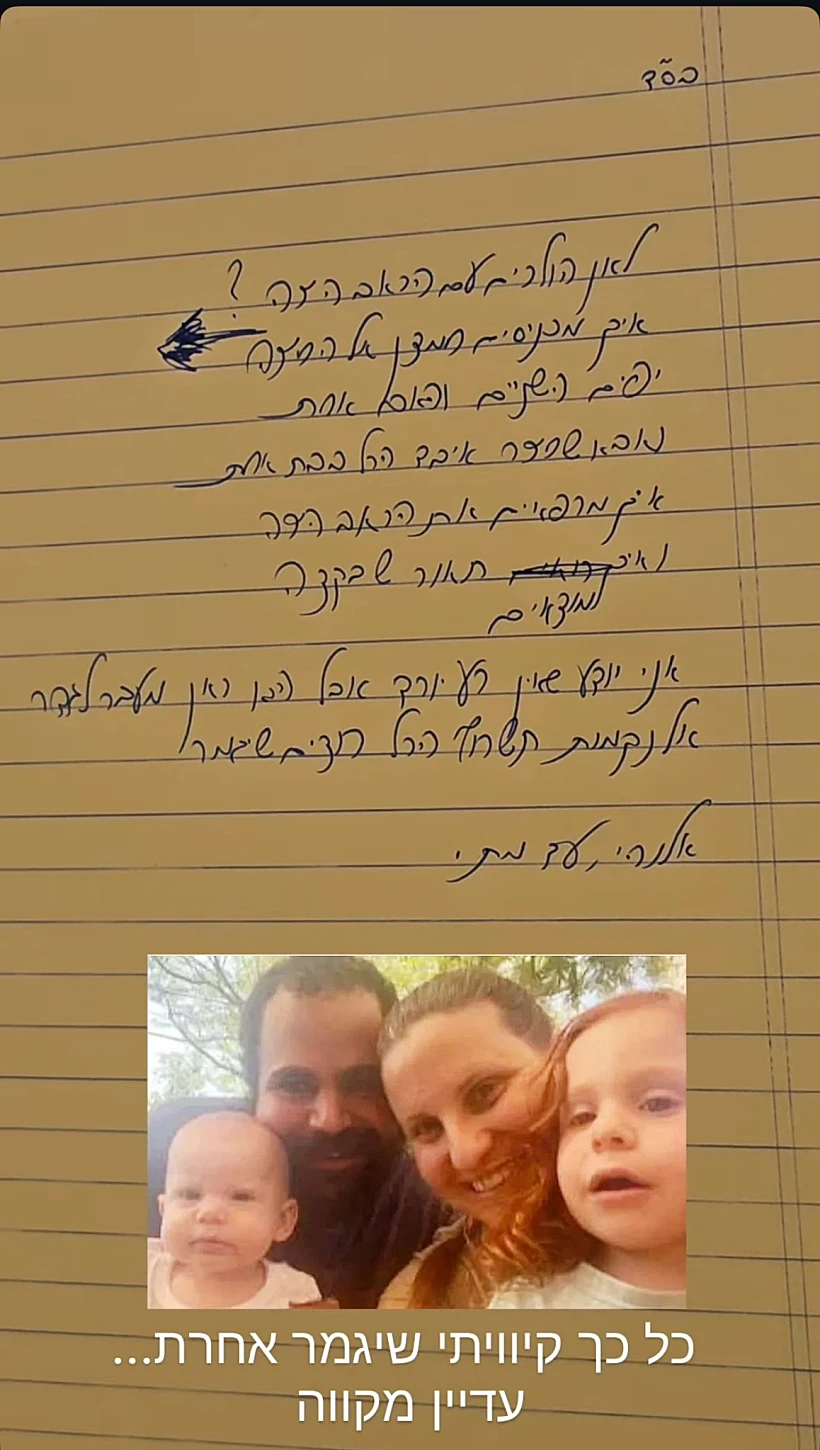 בס"ד
לאן הולכים עם הכאב הזה?
איך מכניסים חמצן אל החזה
יפים השניים ופאה אחת
אבא שפצר איבד הכל בבת אחת
איך מרפאיים את הכאב הזה
ואיך תאור שבקצה
מוצאים
אני יודע שאין רע יורד אבל הגן כאן מעבר לגדר
אל נקמות תשחף הכל רוצים שיגמר
אלוהי, עד מתי
כל כך קיוויתי שיגמר אחרת...
עדיין מקווה